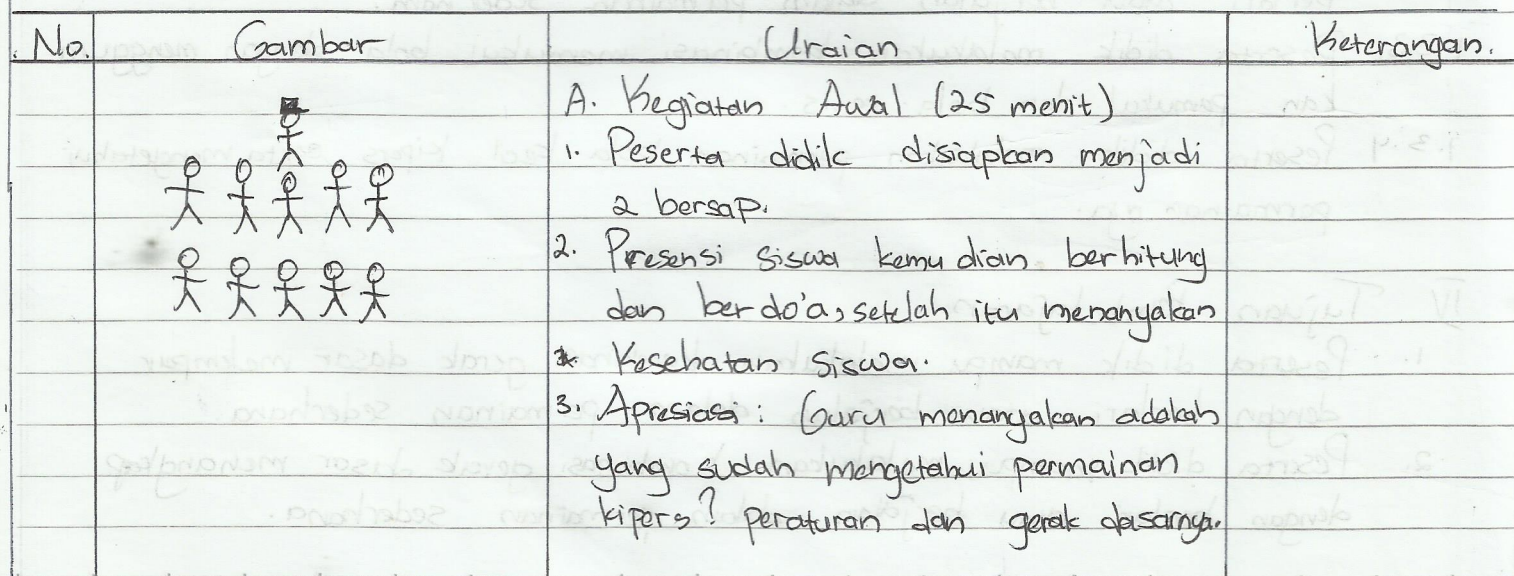 No. Gambar Uraian Keterangan.
A. Kegiatan Awal (25 menit)
1. Peserta didik disiapkan menjadi
2 bersap.
2. Presensi siswa kemudian berhitung
dan berdo'a, setelah itu menanyakan
Kesehatan siswa.
3. Apresiasi : Guru menanyakan adakah
yang sudah mengetahui permainan
kipers? peraturan dan gerak dasarnya.